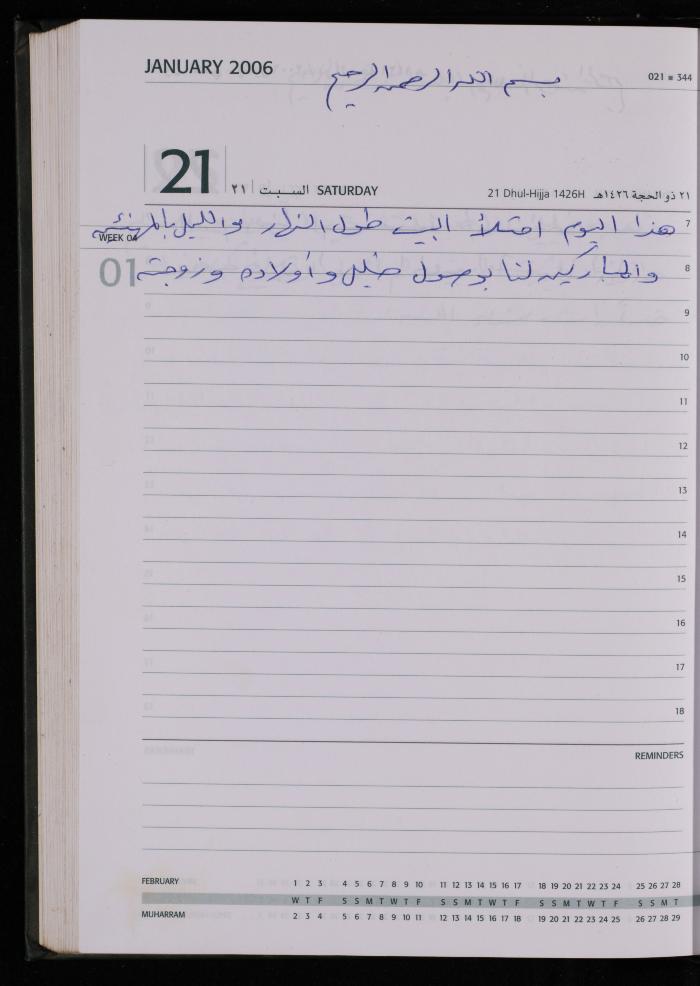 JANUARY 2006
بسم الله الرحمن الرحيم
021 ■ 344
21 ٢١ السبت SATURDAY
21 Dhul-Hijja 1426H ٢١ ذو الحجة ١٤٢٦هـ
هذا اليوم امتلأ البيت طول النهار والليل بالمهنئين 7
WEEK 04
والمباركين لنا بوصول خليل وأولاده وزوجته 8
01
9
10
11
12
13
14
15
16
17
18
REMINDERS
FEBRUARY 1 2 3 4 5 6 7 8 9 10 11 12 13 14 15 16 17 18 19 20 21 22 23 24 25 26 27 28
W T F S S M T W T F S S M T W T F S S M T W T F S S M T
MUHARRAM 2 3 4 5 6 7 8 9 10 11 12 13 14 15 16 17 18 19 20 21 22 23 24 25 26 27 28 29